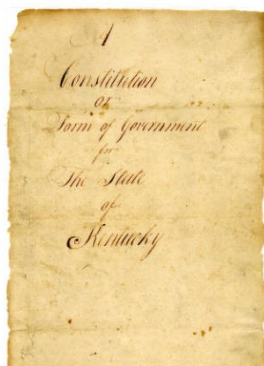 A
Constitution
or
Form of Government
for
The State
of
Kentucky